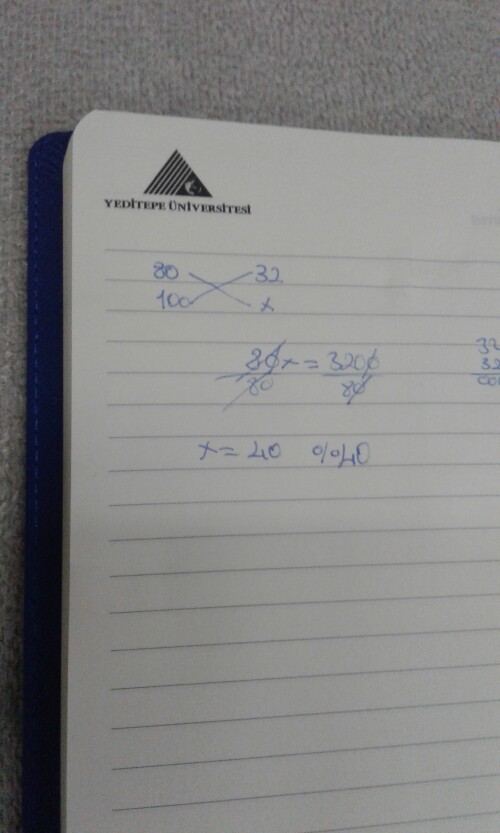 YEDİTEPE ÜNİVERSİTESİ
80 32
100 x
80x = 3200
80 80
x = 40 %40